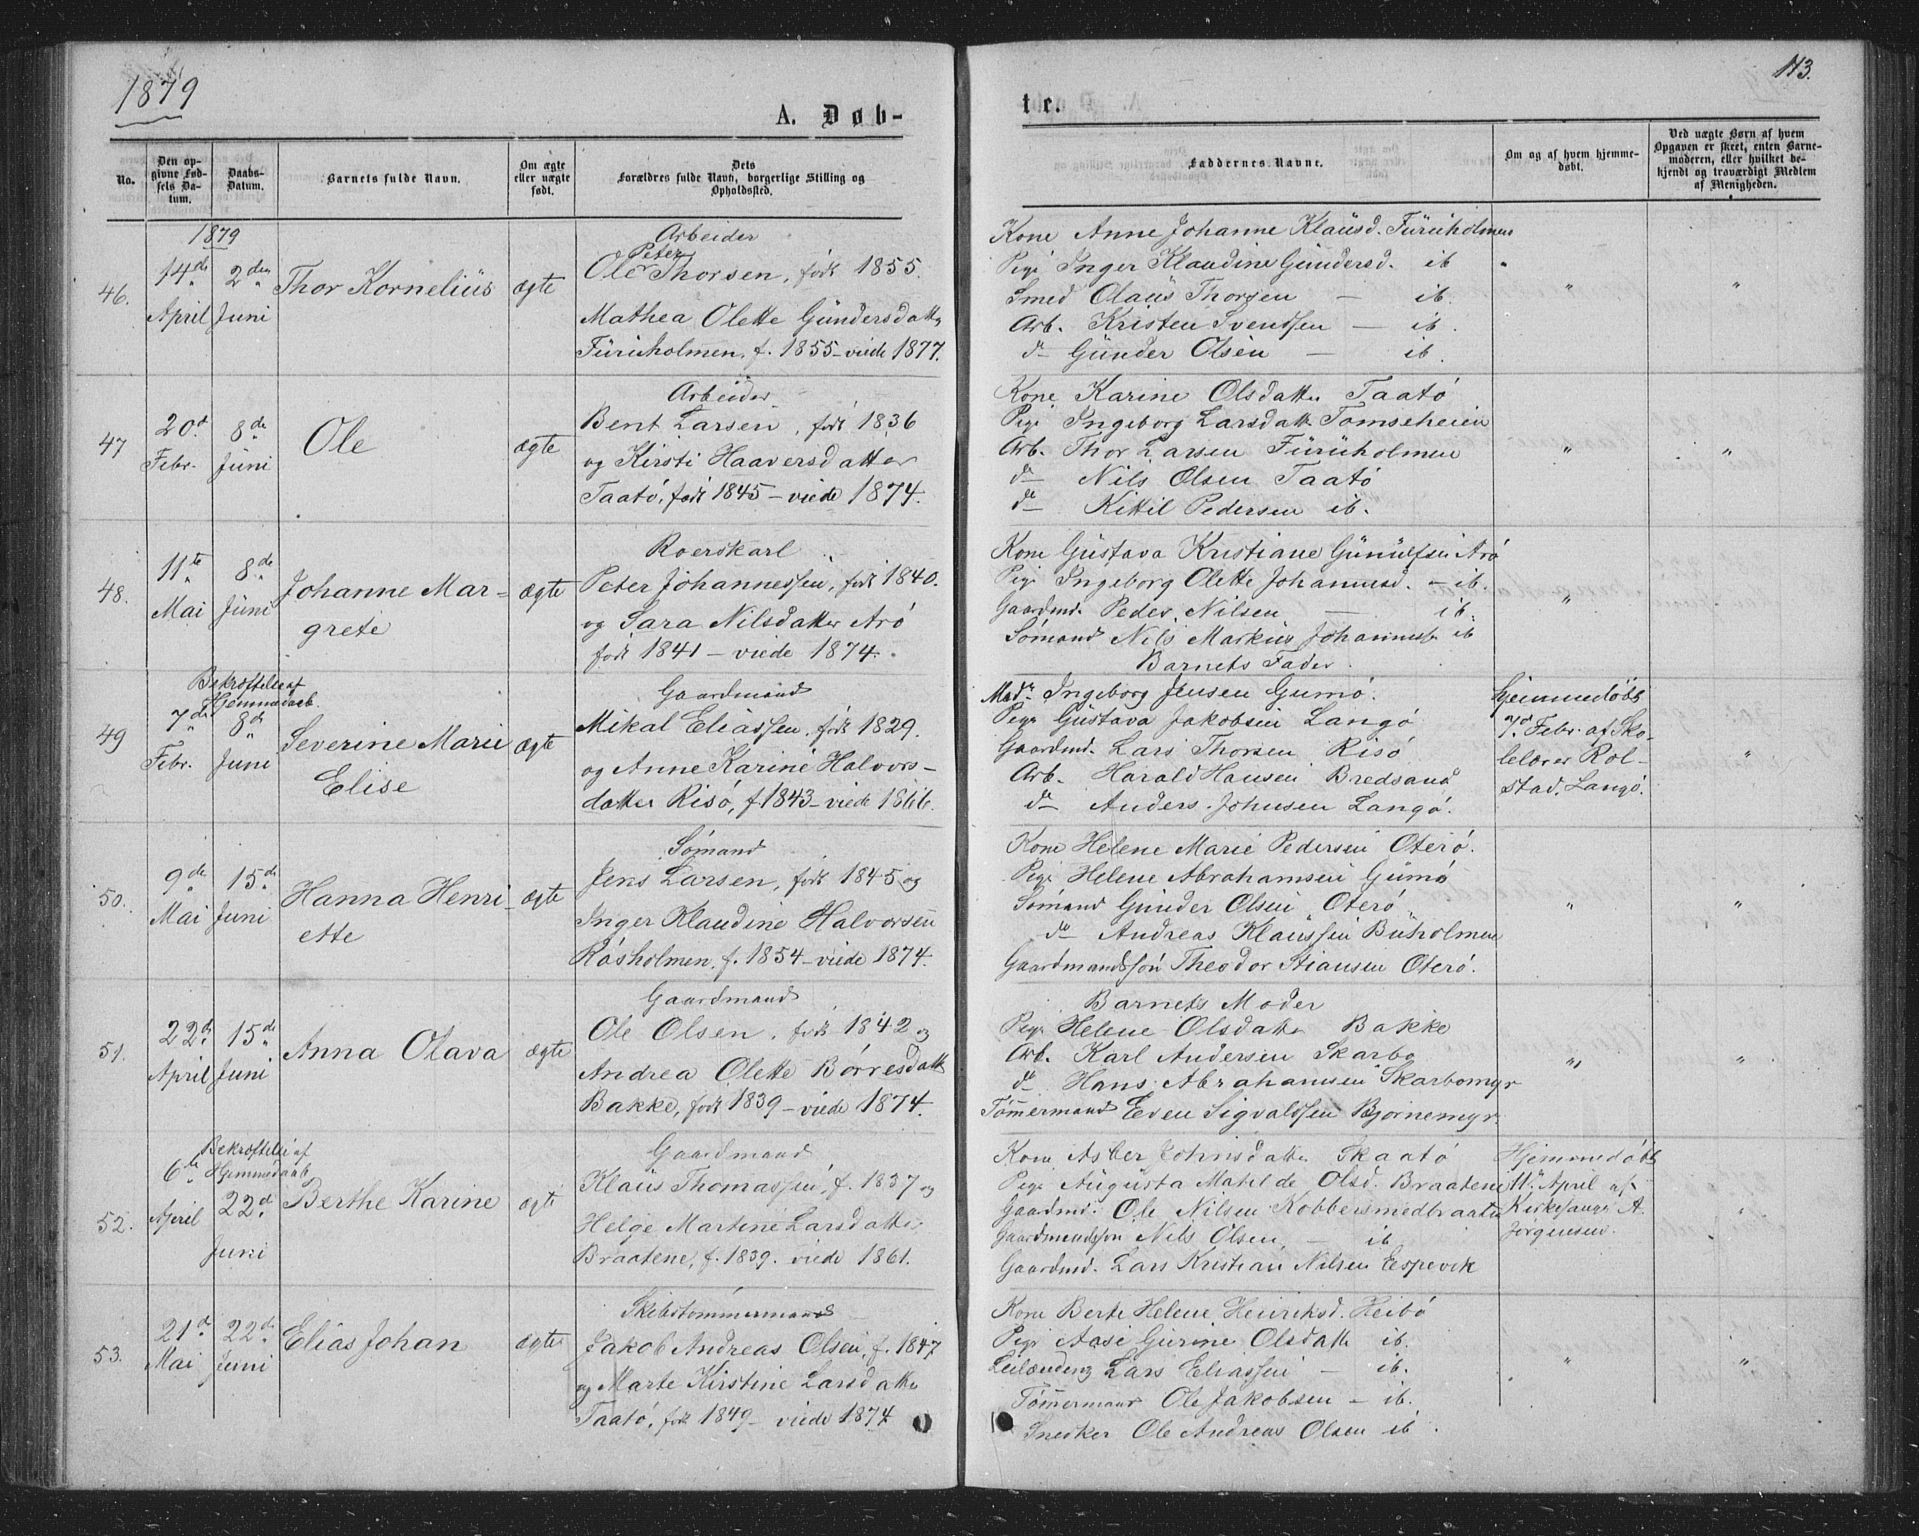 1879
A. Døb-
No.
Den op-
givne Fød-
sels Da-
tum.
Daabs-
Datum.
Barnets fulde Navn.
Om ægte
eller uægte
født.
Dets
Forældres fulde Navn, borgerlige Stilling og
Opholdssted.
1879
46.
14de
April
2den
Juni
Thor Kornelius
ægte
Arbeider
Peter
Ole Thorsen, født 1855.
Mathea Olette Gundersdatter
Furuholmen, f. 1855 - viede 1877.
47
20d
Febr.
8de
Juni
Ole
ægte
Arbeider
Bent Larsen, født 1836
og Kirsti Haaversdatter
Taatø, født 1845 - viede 1874.
48.
11te
Mai
8de
Juni
Johanne Mar-
grete
ægte
Roerskarl
Peter Johannessen, født 1840.
og Sara Nilsdatter Arø
født 1841 - viede 1874.
49
Bekræftelse af
Hjemmedaab.
7de
Febr.
8de
Juni
Severine Marie
Elise
ægte
Gaardmand
Mikal Eliassen, født 1829.
og Anne Karine Halvors-
datter Risø, f. 1843 - viede 1866.
50.
9de
Mai
15de
Juni
Hanna Henri-
ette
ægte
Sømand
Jens Larsen, født 1845 og
Inger Klaudine Halvorsen
Raasholmen, f. 1854 - viede 1874.
51.
22d
April
15de
Juni
Anna Olava
ægte
Gaardmand
Ole Olsen, født 1842 og
Andrea Olette Børresdatt
Bakke, født 1839 - viede 1874.
52.
Bekræftelse af
Hjemmedaab
6te
April
22d
Juni
Berthe Karine
ægte
Gaardmand
Klaus Thomassen, f. 1837 og
Helge Martine Larsdatter
Braatene, f. 1839. viede 1861.
53.
21d
Mai
22de
Juni
Elias Johan
ægte
Skibstømmermand
Jakob Andreas Olsen, f. 1847
og Marte Kirstine Larsdatter
Taatø, født 1849 - viede 1874
113.
te.
Faddernes Navne.
Om og af hvem hjemme-
døbt.
Ved uægte Børn af hvem
Opgaven er skeet, enten Barne-
moderen, eller hvilket be-
kjendt og troværdigt Medlem
af Menigheden.
Kone Anne Johanne Klausd. Furuholmen
Pige Inger Klaudine Gundersd. ib
Smed Olaus Thorsen - ib.
Arb. Kristen Svendsen - ib.
do Gunder Olsen - ib.
" "
Kone Karine Olsdatter Taatø
Pige Ingeborg Larsdatt. Tomseheien
Arb. Thor Larsen Furuholmen
do Nils Olsen Taatø
do Kittil Pedersen ib.
" "
Kone Gustava Kristiane Gunulfsen Arø
Pige Ingeborg Olette Johannesd. - ib.
Gaardmd. Peder Nilsen - ib.
Sømand Nils Markus Johannesen ib
Barnets Fader.
"
Madm Ingeborg Jensen Gumø.
Pige Gustava Jakobsen Langø
Gaardmd. Lars Thorsen Risø
Arb. Harald Hansen Bredsand
do Anders Johnsen Langø.
Hjemmedøbt
7d Febr. af Sko-
lelærer Rol-
stad, Langø.
"
Kone Helene Marie Pedersen Oterø.
Pige Helene Abrahamsen Gumø
Sømand Gunder Olsen Oterø
do Andreas Klaussen Buholmen
Gaardmandssøn Theodor Stiansen Oterø.
" "
Barnets Moder
Pige Helene Olsdatter Bakke
Arb. Karl Andersen Skarbo
do Hans Abrahamsen Skarbomyr
Tømmermand Even Sigvaldsen Bjørnemyr.
" "
Kone Asber Johnsdatter Skaatø
Pige Augusta Matilde Olsd. Braatene
Gaardmd. Ole Nilsen Kobbersmedbraaten
Gaardmandssøn Nils Olsen - ib
Gaardmd. Lars Kristian Nilsen Espevik
Hjemmedøbt
11te April af
Kirkesanger A.
Jørgensen.
"
Kone Berte Helene Henriksd. Heibø
Pige Aase Gurine Olsdatt ib.
Leilænding Lars Eliassen - ib.
Tømmermand Ole Jakobsen - ib.
Snedker Ole Andreas Olsen ib.
" "